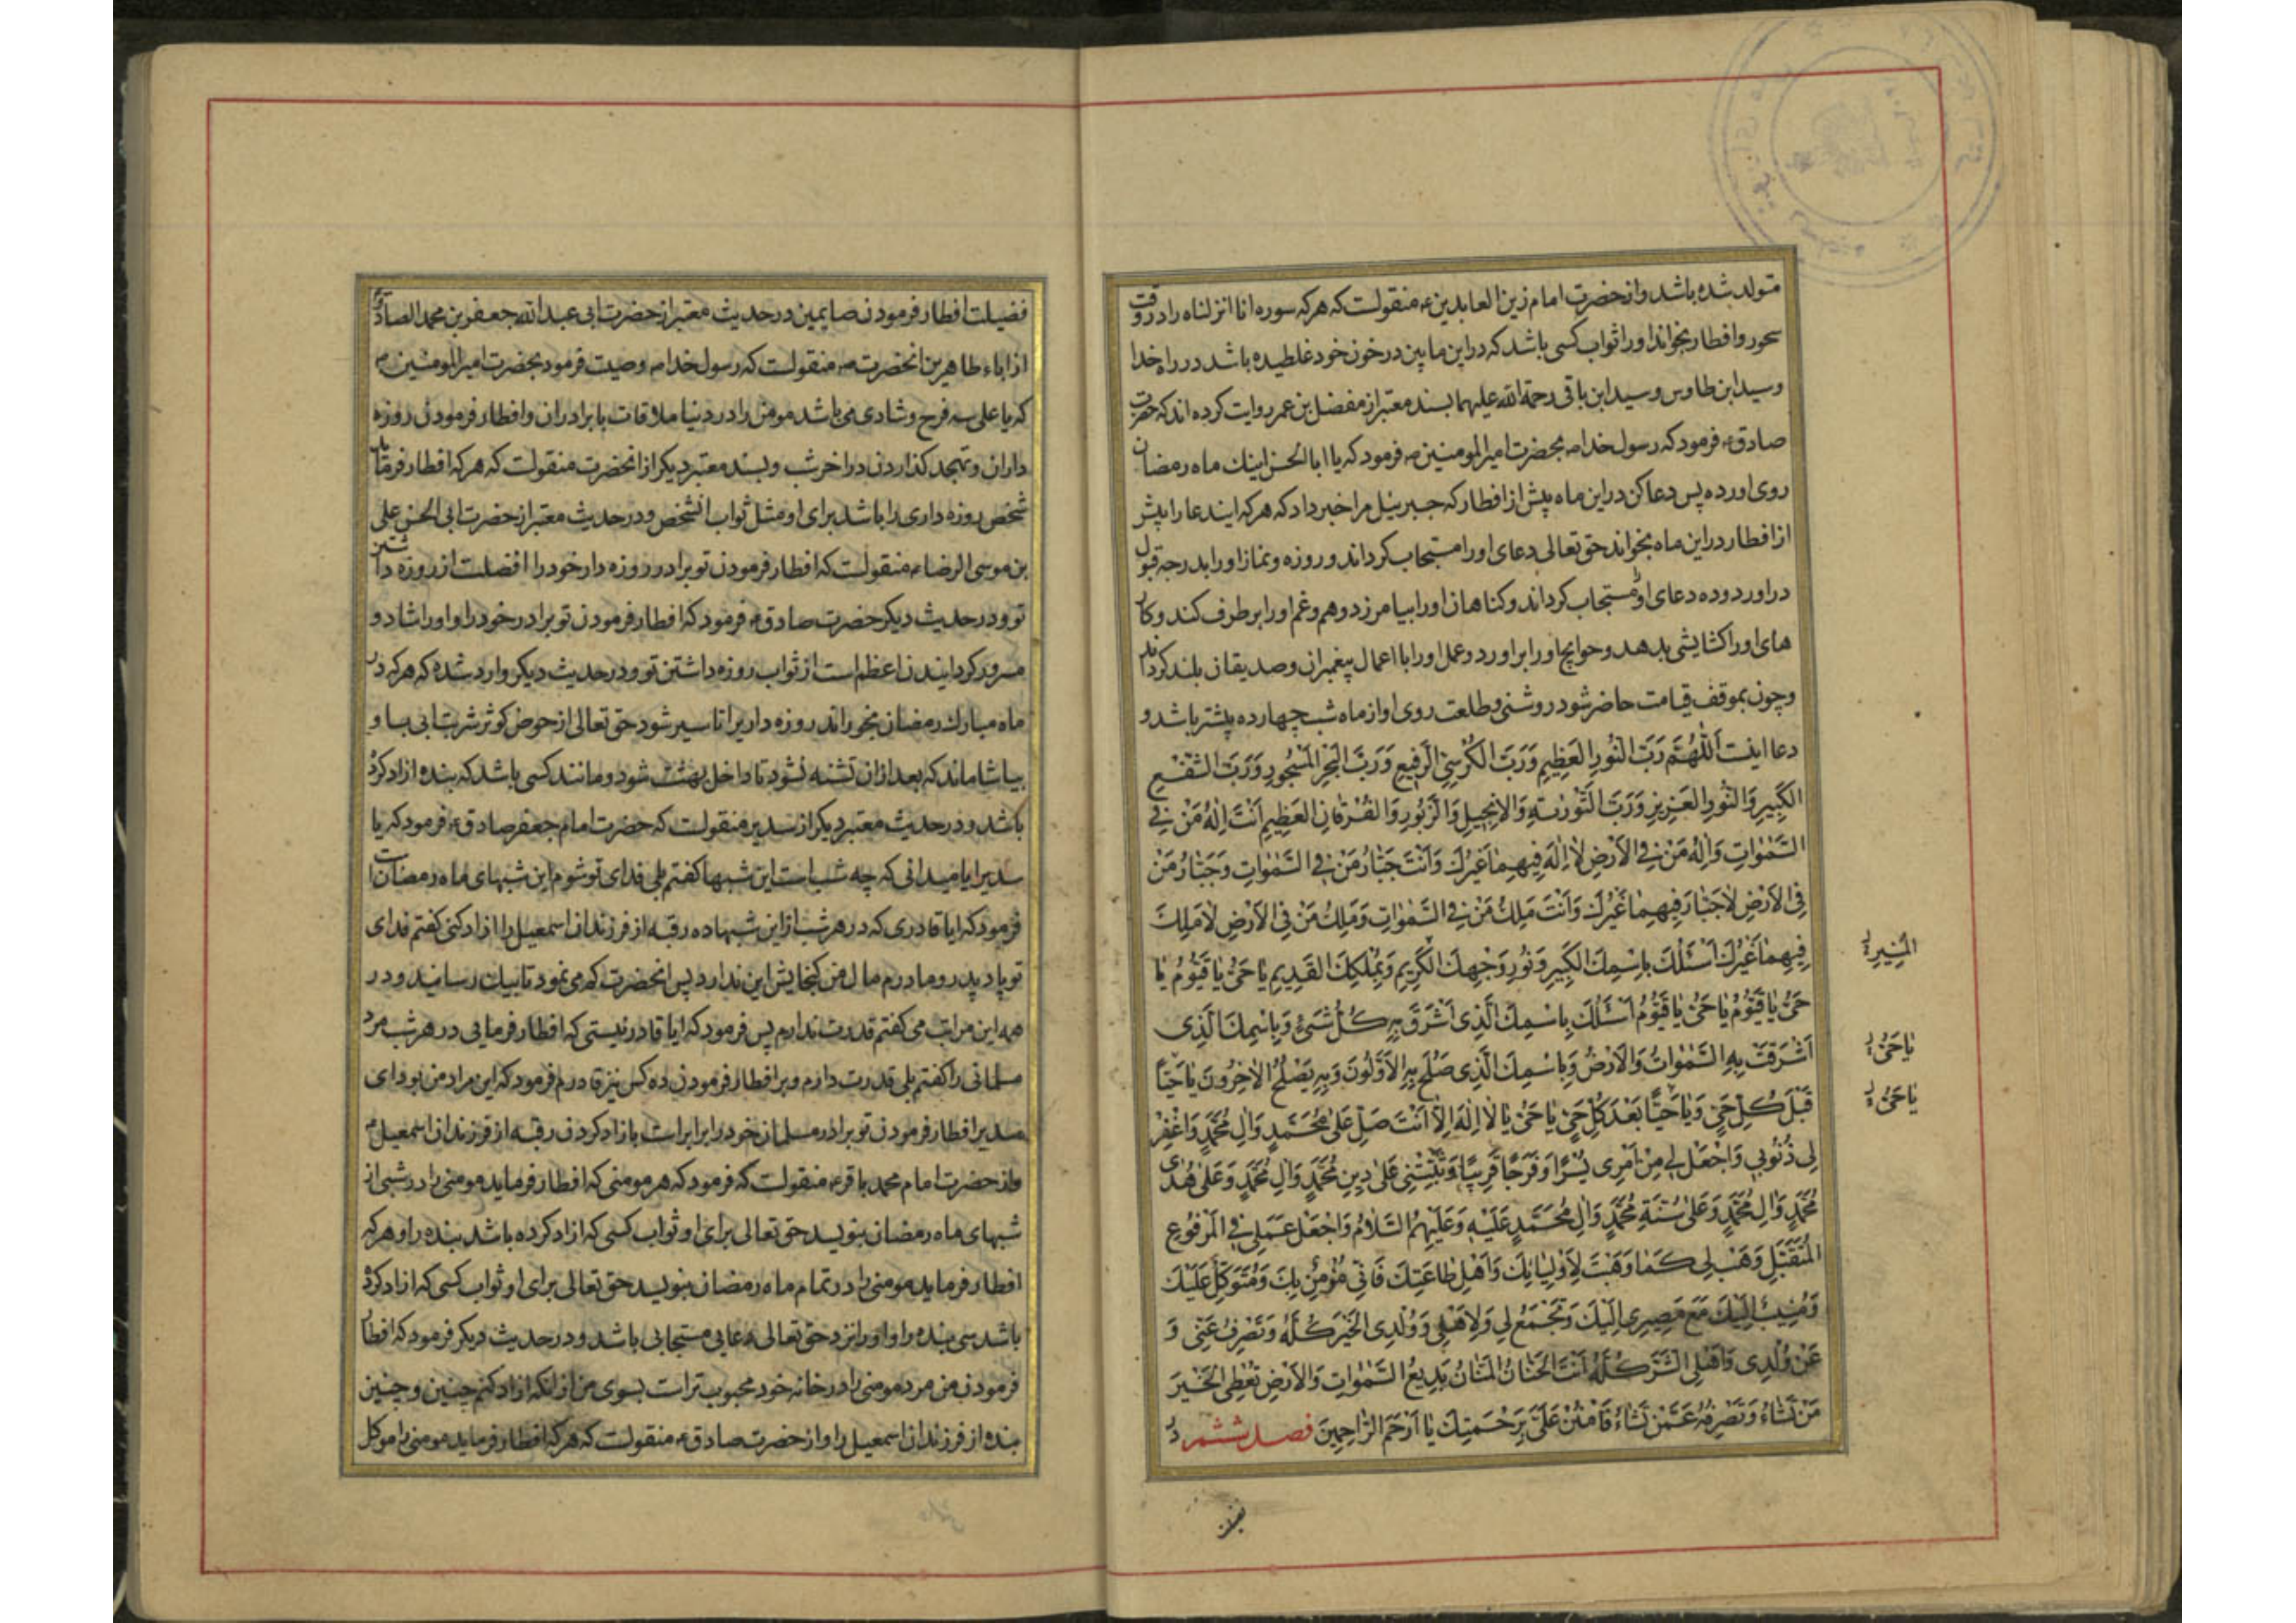 متولد شده باشد و از حضرت امام زین العابدین ع منقولست که هر که سوره انا انزلناه را در وقت
سحور و افطار بخواند او را ثواب کسی باشد که در این مابین در خون خود غلطیده باشد در راه خدا
و سید ابن طاوس و سید ابن باقی رحمة الله علیهما بسند معتبر از مفضل بن عمر روایت کرده اند که حضرت
صادق ع فرمود که رسول خدا ص بحضرت امیر المومنین ع فرمود که یا ابا الحسن اینک ماه رمضان
روی آورده پس دعا کن در این ماه پیش از افطار که جبرئیل مرا خبر داد که هر که ایندعا را پیش
از افطار در این ماه بخواند حق تعالی دعای او را مستجاب کرداند و روزه و نماز او را بدرجه قبول
دراورد و ده دعای او مستجاب کرداند و کناهان او را بیامرزد و هم و غم او را بر طرف کند و کار
های او را کشایشی بدهد و حوایج او را براورد و عمل او را با اعمال پیغمبران و صدیقان بلند کرداند
و چون بموقف قیامت حاضر شود روشنی و طلعت روی او از ماه شب چهارده بیشتر باشد و
دعا اینست اَللّٰهُمَّ رَبَّ النُّورِ العَظِیمِ وَرَبَّ الکُرْسِیِّ الرَّفِیعِ وَرَبَّ البَحْرِ المَسْجُورِ وَرَبَّ الشَّفْعِ
الکَبِیرِ وَالنُّورِ العَزِیزِ وَرَبَّ التَّوْرٰیةِ وَالاِنْجِیلِ وَالزَّبُورِ وَالفُرْقانِ العَظِیمِ اَنْتَ اِلٰهُ مَنْ فِی
السَّمٰوٰاتِ وَاِلٰهُ مَنْ فِی الاَرْضِ لاٰ اِلٰهَ فِیهِمٰا غَیْرُكَ وَاَنْتَ جَبّٰارُ مَنْ فِی السَّمٰوٰاتِ وَجَبّٰارُ مَنْ
فِی الاَرْضِ لاٰ جَبّٰارَ فِیهِمٰا غَیْرُكَ وَاَنْتَ مَلِكُ مَنْ فِی السَّمٰوٰاتِ وَمَلِكُ مَنْ فِی الاَرْضِ لاٰ مَلِكَ
فِیهِمٰا غَیْرُكَ اَسْئَلُكَ بِاسْمِكَ الکَبِیرِ وَنُورِ وَجْهِكَ الکَرِیمِ وَبِمُلْكِكَ القَدِیمِ یٰا حَیُّ یٰا قَیُّومُ یٰا
المُنِیرِ
حَیُّ یٰا قَیُّومُ یٰا حَیُّ یٰا قَیُّومُ اَسْئَلُكَ بِاسْمِكَ الَّذِی اَشْرَقَ بِهِ کُلُّ شَیْءٍ وَبِاسْمِكَ الَّذِی
اَشْرَقَتْ بِهِ السَّمٰوٰاتُ وَالاَرْضُ وَبِاسْمِكَ الَّذِی صَلُحَ بِهِ الاَوَّلُونَ وَبِهِ یَصْلُحُ الاٰخِرُونَ یٰا حَیًّا
یٰا حَیُّ
قَبْلَ کُلِّ حَیٍّ وَیٰا حَیًّا بَعْدَ کُلِّ حَیٍّ یٰا حَیُّ یٰا لاٰ اِلٰهَ اِلاّٰ اَنْتَ صَلِّ عَلٰی مُحَمَّدٍ وَاٰلِ مُحَمَّدٍ وَاغْفِرْ
یٰا حَیُّ
لِی ذُنُوبِی وَاجْعَلْ لِی مِنْ اَمْرِی یُسْرًا وَفَرَجًا قَرِیبًا وَثَبِّتْنِی عَلٰی دِینِ مُحَمَّدٍ وَاٰلِ مُحَمَّدٍ وَعَلٰی هُدٰی
مُحَمَّدٍ وَاٰلِ مُحَمَّدٍ وَعَلٰی سُنَّةِ مُحَمَّدٍ وَاٰلِ مُحَمَّدٍ عَلَیْهِ وَعَلَیْهِمُ السَّلاٰمُ وَاجْعَلْ عَمَلِی فِی المَرْفُوعِ
المُتَقَبَّلِ وَهَبْ لِی کَمٰا وَهَبْتَ لِاَوْلِیٰائِكَ وَاَهْلِ طٰاعَتِكَ فَاِنِّی مُؤْمِنٌ بِكَ وَمُتَوَکِّلٌ عَلَیْكَ
وَمُنِیبٌ اِلَیْكَ مَعَ مَصِیرِی اِلَیْكَ وَتَجْمَعُ لِی وَلِاَهْلِی وَوُلْدِی الخَیْرَ کُلَّهُ وَتَصْرِفُ عَنِّی وَ
عَنْ وُلْدِی وَاَهْلِی الشَّرَّ کُلَّهُ اَنْتَ الحَنّٰانُ المَنّٰانُ بَدِیعُ السَّمٰوٰاتِ وَالاَرْضِ تُعْطِی الخَیْرَ
مَنْ تَشٰاءُ وَتَصْرِفُهُ عَمَّنْ تَشٰاءُ فَامْنُنْ عَلَیَّ بِرَحْمَتِكَ یٰا اَرْحَمَ الرّٰاحِمِینَ فصل ششم در
فضیلت
فضیلت افطار فرمودن صایمین در حدیث معتبر از حضرت ابی عبدالله جعفر بن محمد الصادق و
از اباء طاهرین انحضرت ع منقولست که رسول خدا ص وصیت فرمود بحضرت امیر المومنین ع
که یا علی سه فرح و شادی می باشد مومن را در دنیا ملاقات با برادران و افطار فرمودن روزه
داران و تهجد کذاردن در اخر شب و بسند معتبر دیکر از انحضرت منقولست که هر که افطار فرماید
شخص روزه داری را باشد برای او مثل ثواب انشخص و در حدیث معتبر از حضرت ابی الحسن علی
بن موسی الرضا ع منقولست که افطار فرمودن تو برادر روزه دار خود را افضلست از روزه داشتن
تو و در حدیث دیکر حضرت صادق ع فرمود که افطار فرمودن تو برادر خود را و او را شاد و
مسرور کردانیدن اعظم است از ثواب روزه داشتن تو و در حدیث دیکر وارد شده که هر که در
ماه مبارك رمضان بخوراند روزه داریرا تا سیر شود حق تعالی از حوض کوثر شربت ابی باو
بیاشاماند که بعد از ان تشنه نشود تا داخل بهشت شود و مانند کسی باشد که بنده ازاد کرده
باشد و در حدیث معتبر دیکر از سدیر منقولست که حضرت امام جعفر صادق ع فرمود که یا
سدیر ایا میدانی که چه شب است این شبها کفتم بلی فدای تو شوم این شبهای ماه رمضان است
فرمود که ایا قادری که در هر شب از این شبها ده رقبه از فرزندان اسمعیل را ازاد کنی کفتم فدای
تو باد پدر و مادرم مال من کنجایش این ندارد پس انحضرت کم می نمود تا بیك رسانید و در
همه این مراتب می کفتم قدرت ندارم پس فرمود که ایا قادر نیستی که افطار فرمایی در هر شب مرد
مسلمانی را کفتم بلی قدرت دارم و بر افطار فرمودن ده کس نیز قادرم فرمود که این مراد من بود ای
سدیر افطار فرمودن تو برادر مسلمان خود را برابر است با ازاد کردن رقبه از فرزندان اسمعیل ع
و از حضرت امام محمد باقر ع منقولست که فرمود که هر مومنی که افطار فرماید مومنی را در شبی از
شبهای ماه رمضان بنویسد حق تعالی برای او ثواب کسی که ازاد کرده باشد بنده را و هر که
افطار فرماید مومنی را در تمام ماه رمضان بنویسد حق تعالی برای او ثواب کسی که ازاد کرده
باشد سی بنده را و او را نزد حق تعالی دعایی مستجابی باشد و در حدیث دیکر فرمود که افطار
فرمودن من مرد مومنی را در خانه خود محبوب تر است بسوی من از انکه ازاد کنم چنین و چنین
بنده از فرزندان اسمعیل را و از حضرت صادق ع منقولست که هر که افطار فرماید مومنی را موکل